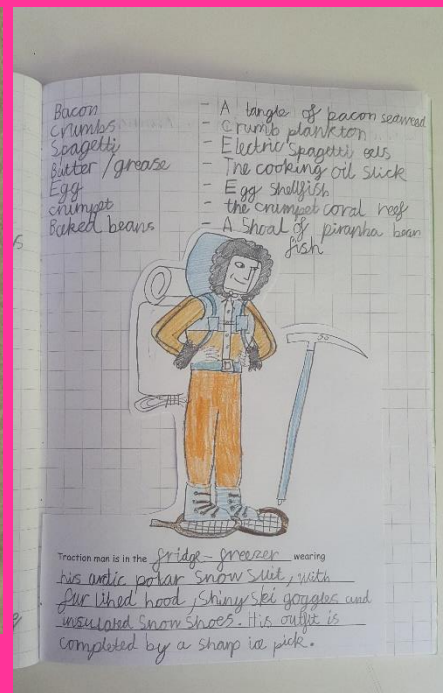 Bacon - A tangle of bacon seaweed
crumbs - crumb plankton
Spagetti - Electric spagetti eels
Butter / grease - The cooking oil slick
Egg - Egg shellfish
crumpet - the crumpet coral reef
Baked beans - A shoal of piranha bean
fish
Traction man is in the fridge-freezer wearing
his arctic polar snow suit, with
fur lined hood, shiny ski goggles and
insulated snow shoes. His outfit is
completed by a sharp ice pick.